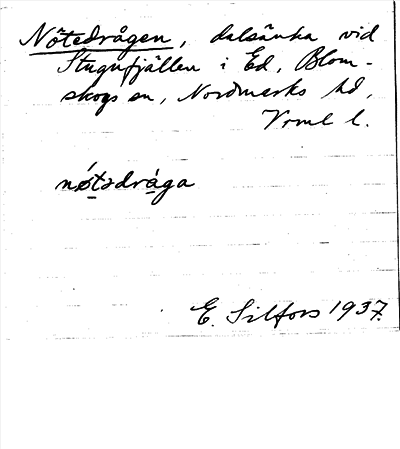 Nötedrågen, dalsänka vid
Stugufjällen i Ed, Blom-
skogs sn, Nordmarks hd,
Vrml l.
nǿtədråga
E. Silfors 1937.